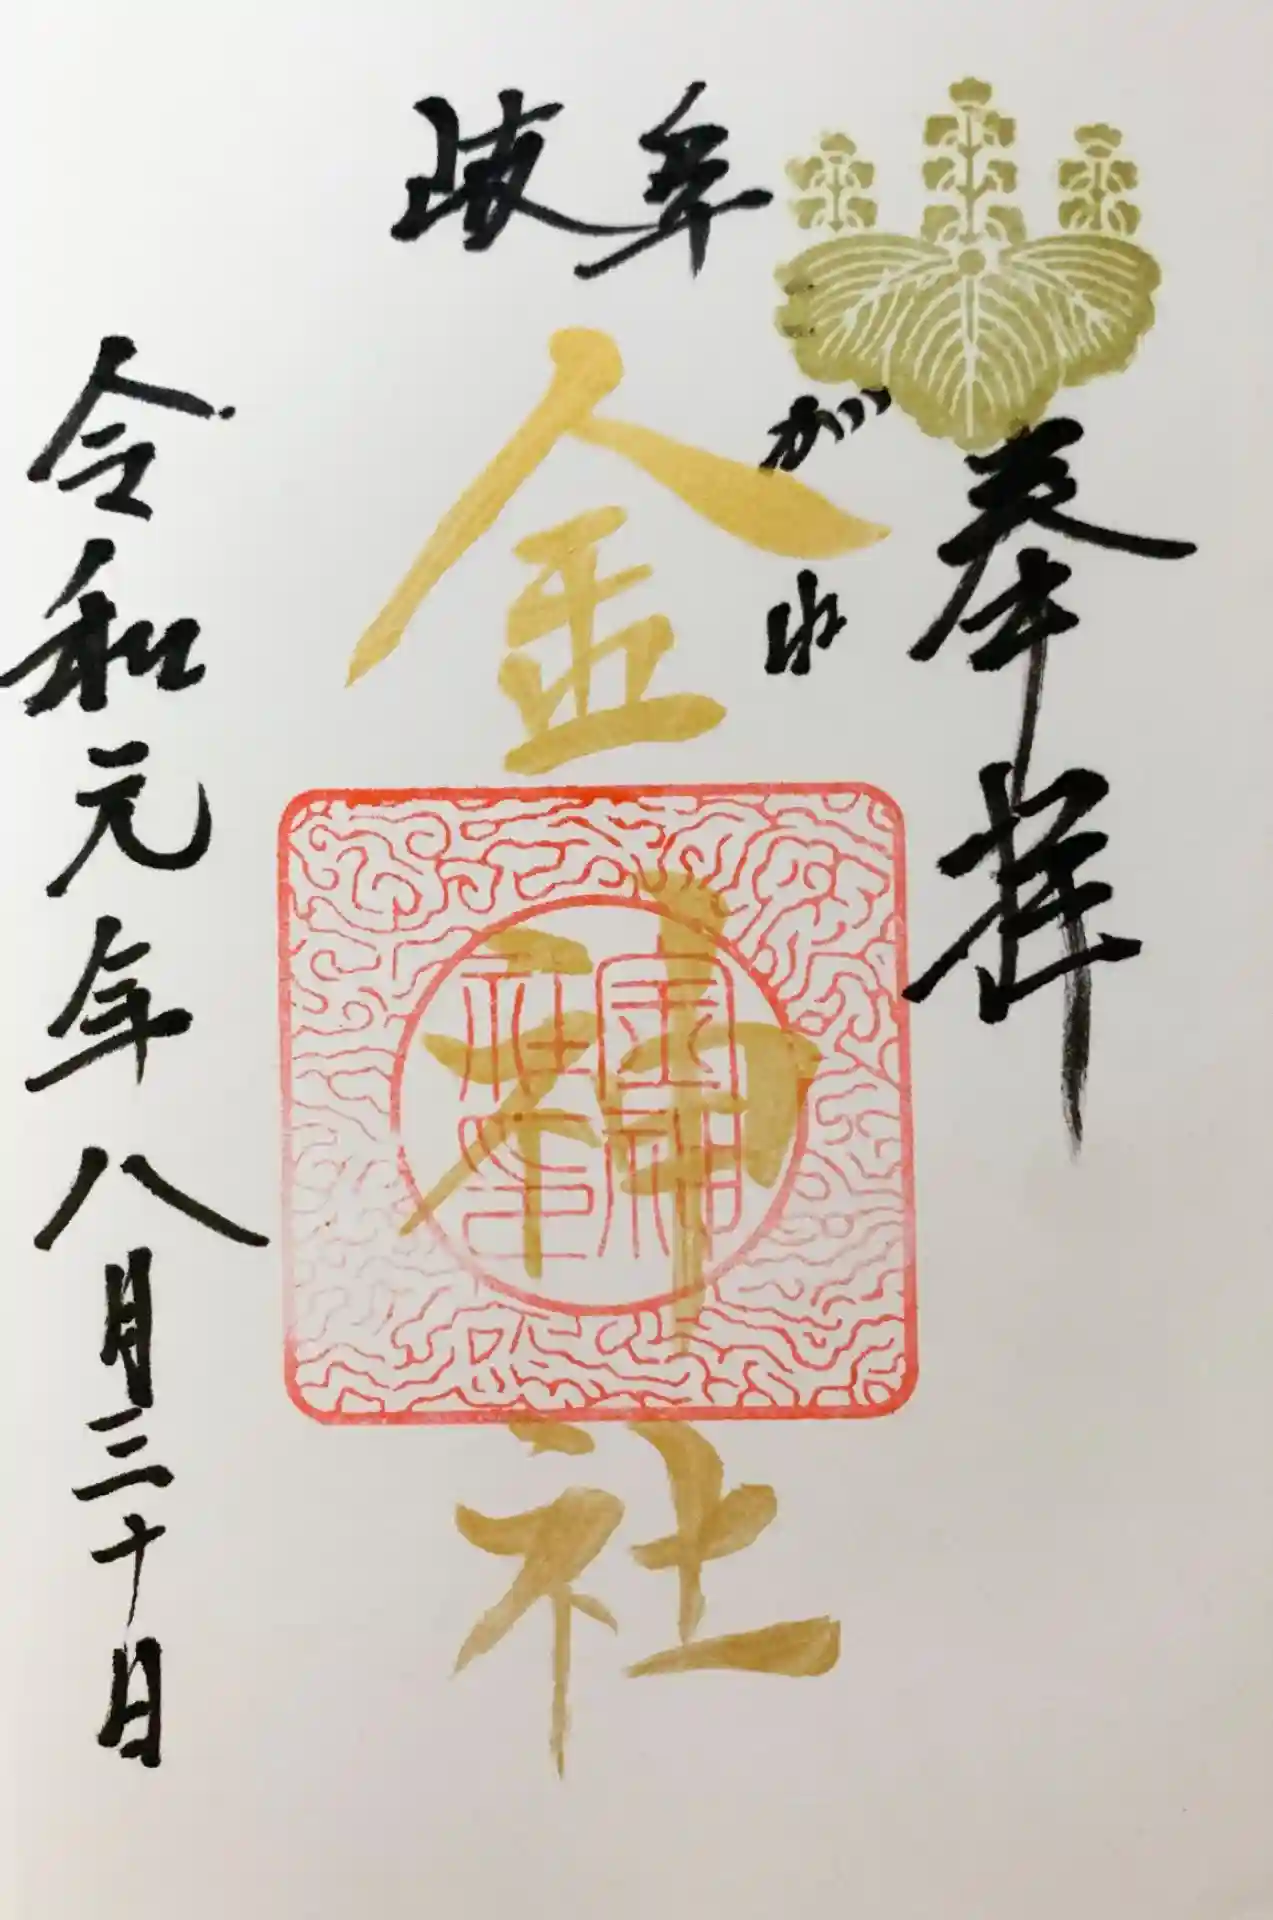 奉拝
岐阜
がね
金神社
金神社印
令和元年八月三十日